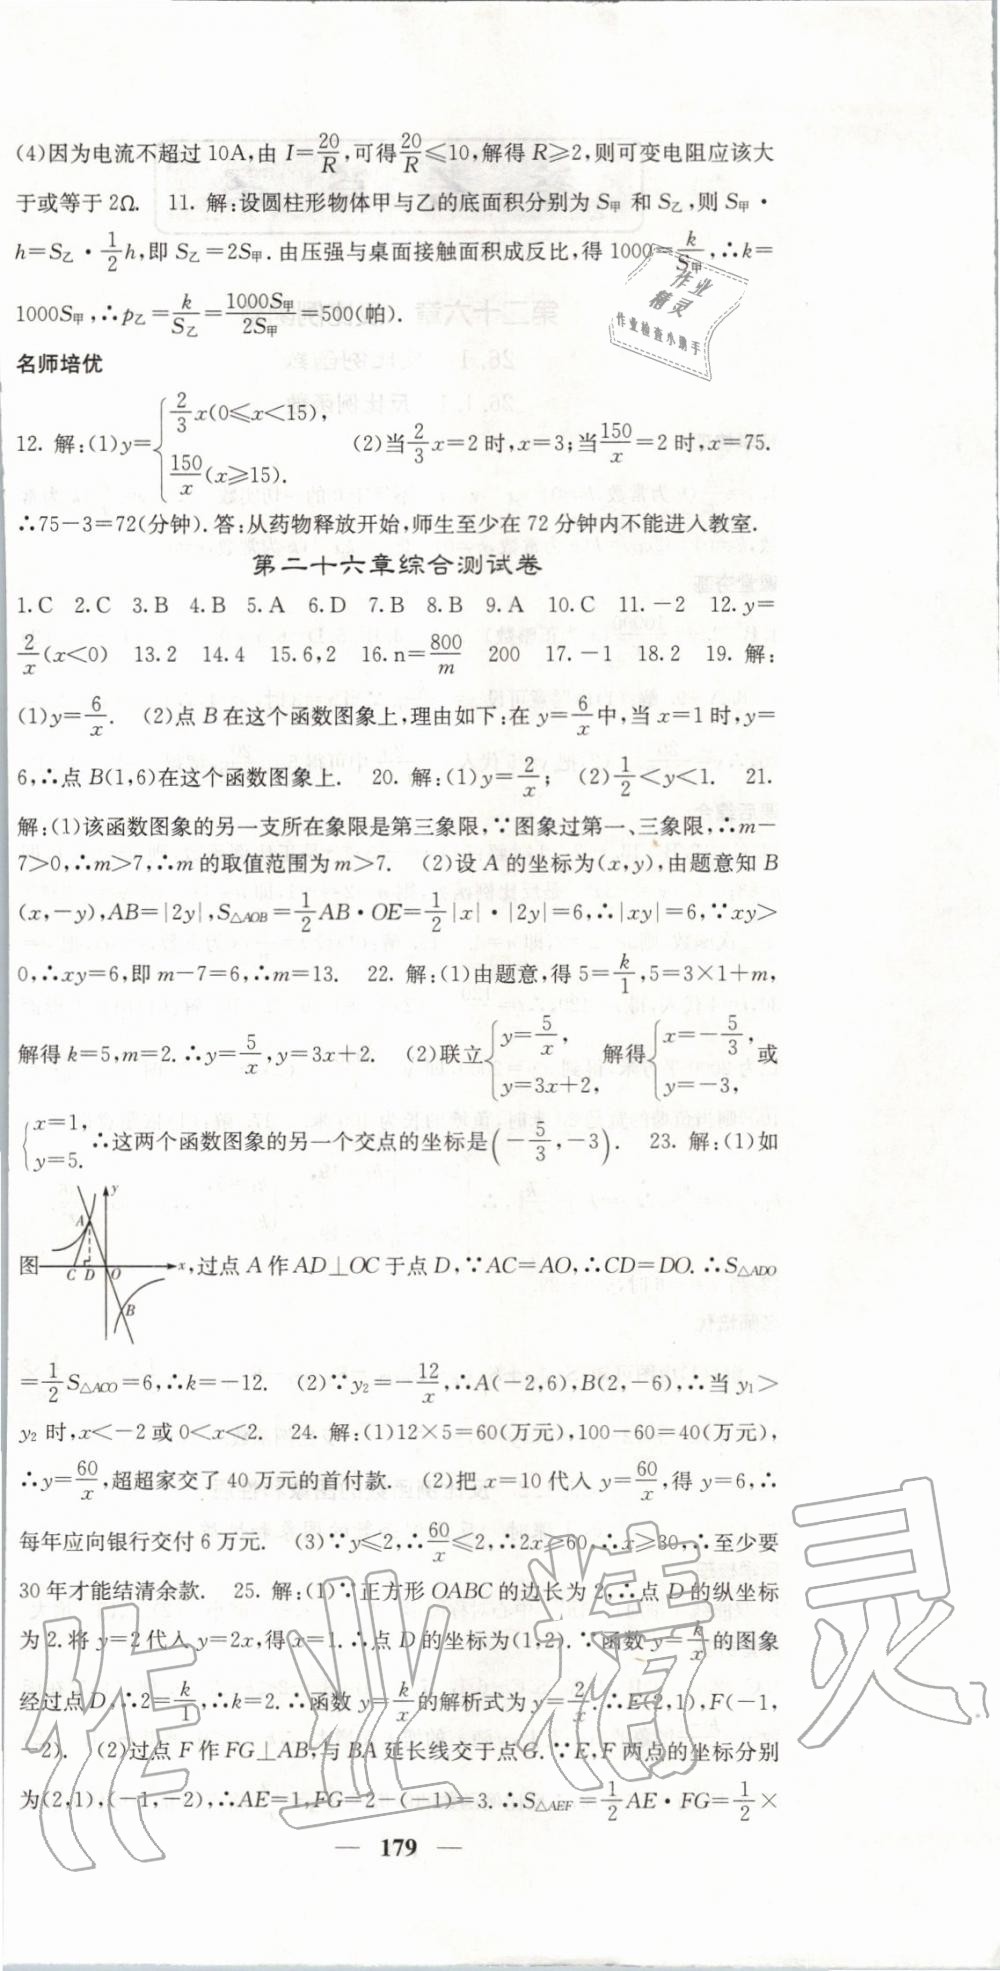 (4)因为电流不超过10A,由 I=20/R,可得20/R≤10,解得 R≥2,则可变电阻应该大
于或等于 2Ω. 11. 解:设圆柱形物体甲与乙的底面积分别为 S甲 和 S乙,则 S甲·
h=S乙·1/2h,即 S乙=2S甲.由压强与桌面接触面积成反比,得 1000=k/S甲,∴k=
1000S甲,∴p乙=k/S乙=1000S甲/2S甲=500(帕).
名师培优
12. 解:(1)y={2/3x(0≤x<15), 150/x(x≥15). (2)当2/3x=2时,x=3;当150/x=2时,x=75.
∴75-3=72(分钟).答:从药物释放开始,师生至少在 72 分钟内不能进入教室.
第二十六章综合测试卷
1.C 2.C 3.B 4.B 5.A 6.D 7.B 8.B 9.A 10.C 11.-2 12.y=
2/x(x<0) 13.2 14.4 15.6,2 16.n=800/m 200 17.-1 18.2 19. 解:
(1)y=6/x. (2)点 B 在这个函数图象上,理由如下:在 y=6/x中,当 x=1 时,y=
6,∴点 B(1,6)在这个函数图象上. 20. 解:(1)y=2/x; (2)1/2<y<1. 21.
解:(1)该函数图象的另一支所在象限是第三象限,∵图象过第一、三象限,∴m-
7>0,∴m>7,∴m 的取值范围为 m>7. (2)设 A 的坐标为(x,y),由题意知 B
(x,-y),AB=|2y|,S△AOB=1/2AB·OE=1/2|x|·|2y|=6,∴|xy|=6,∵xy>
0,∴xy=6,即 m-7=6,∴m=13. 22. 解:(1)由题意,得 5=k/1,5=3×1+m,
解得 k=5,m=2.∴y=5/x,y=3x+2. (2)联立{y=5/x, y=3x+2, 解得{x=-5/3, y=-3, 或
{x=1, y=5. ∴这两个函数图象的另一个交点的坐标是(-5/3,-3). 23. 解:(1)如
y
A
C D O
B
图 x,过点 A 作 AD⊥OC 于点 D,∵AC=AO,∴CD=DO.∴S△ADO
=1/2S△ACO=6,∴k=-12. (2)∵y₂=-12/x,∴A(-2,6),B(2,-6),∴当 y₁>
y₂ 时,x<-2 或 0<x<2. 24. 解:(1)12×5=60(万元),100-60=40(万元),
∴y=60/x,超超家交了 40 万元的首付款. (2)把 x=10 代入 y=60/x,得 y=6,∴
每年应向银行交付 6 万元. (3)∵y≤2,∴60/x≤2,∴2x≥60,∴x≥30,∴至少要
30 年才能结清余款. 25. 解:(1)∵正方形 OABC 的边长为 2,∴点 D 的纵坐标
为 2.将 y=2 代入 y=2x,得 x=1.∴点 D 的坐标为(1,2).∵函数 y=k/x的图象
经过点 D,∴2=k/1,∴k=2.∴函数 y=k/x的解析式为 y=2/x.∴E(2,1),F(-1,
-2). (2)过点 F 作 FG⊥AB,与 BA 延长线交于点 G.∵E,F 两点的坐标分别
为(2,1),(-1,-2),∴AE=1,FG=2-(-1)=3.∴S△AEF=1/2AE·FG=1/2×
— 179 —
作业
精灵
作业检查小助手
作业精灵